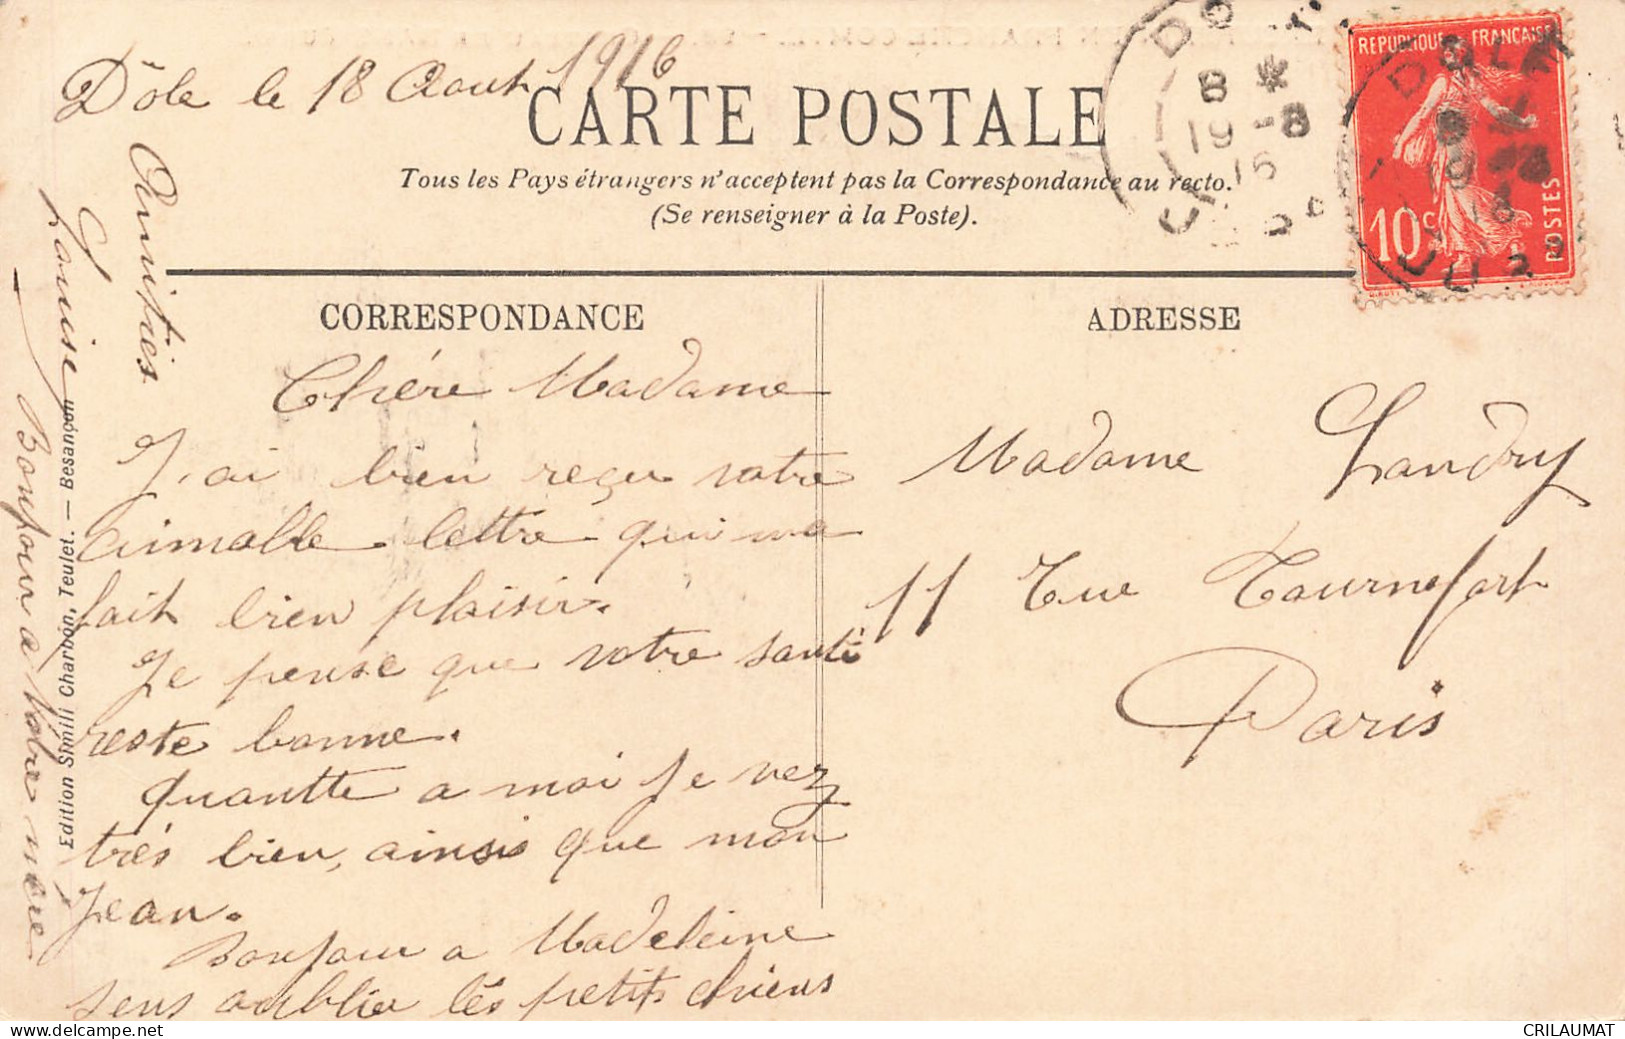 Dôle le 18 Aout 1916
CARTE POSTALE
Tous les Pays étrangers n'acceptent pas la Correspondance au recto.
(Se renseigner à la Poste).
REPUBLIQUE FRANÇAISE
10c
POSTES
DOLE
8 *
19 - 8
16
CORRESPONDANCE
ADRESSE
Chére Madame
J'ai bien reçu votre
aimable lettre qui ma
fait bien plaisir.
Je pense que votre santé
reste bonne.
quantte a moi Je vez
trés bien, ainsis que mon
Jean.
Bonjour a Madeleine
sens oublier lés petits chiens
Bonjour a Votre mére
Amitiés
Louise
Madame Landry
11 Rue Tournefort
Paris
Edition Simili Charbon, Teulet. — Besançon
CRILAUMAT